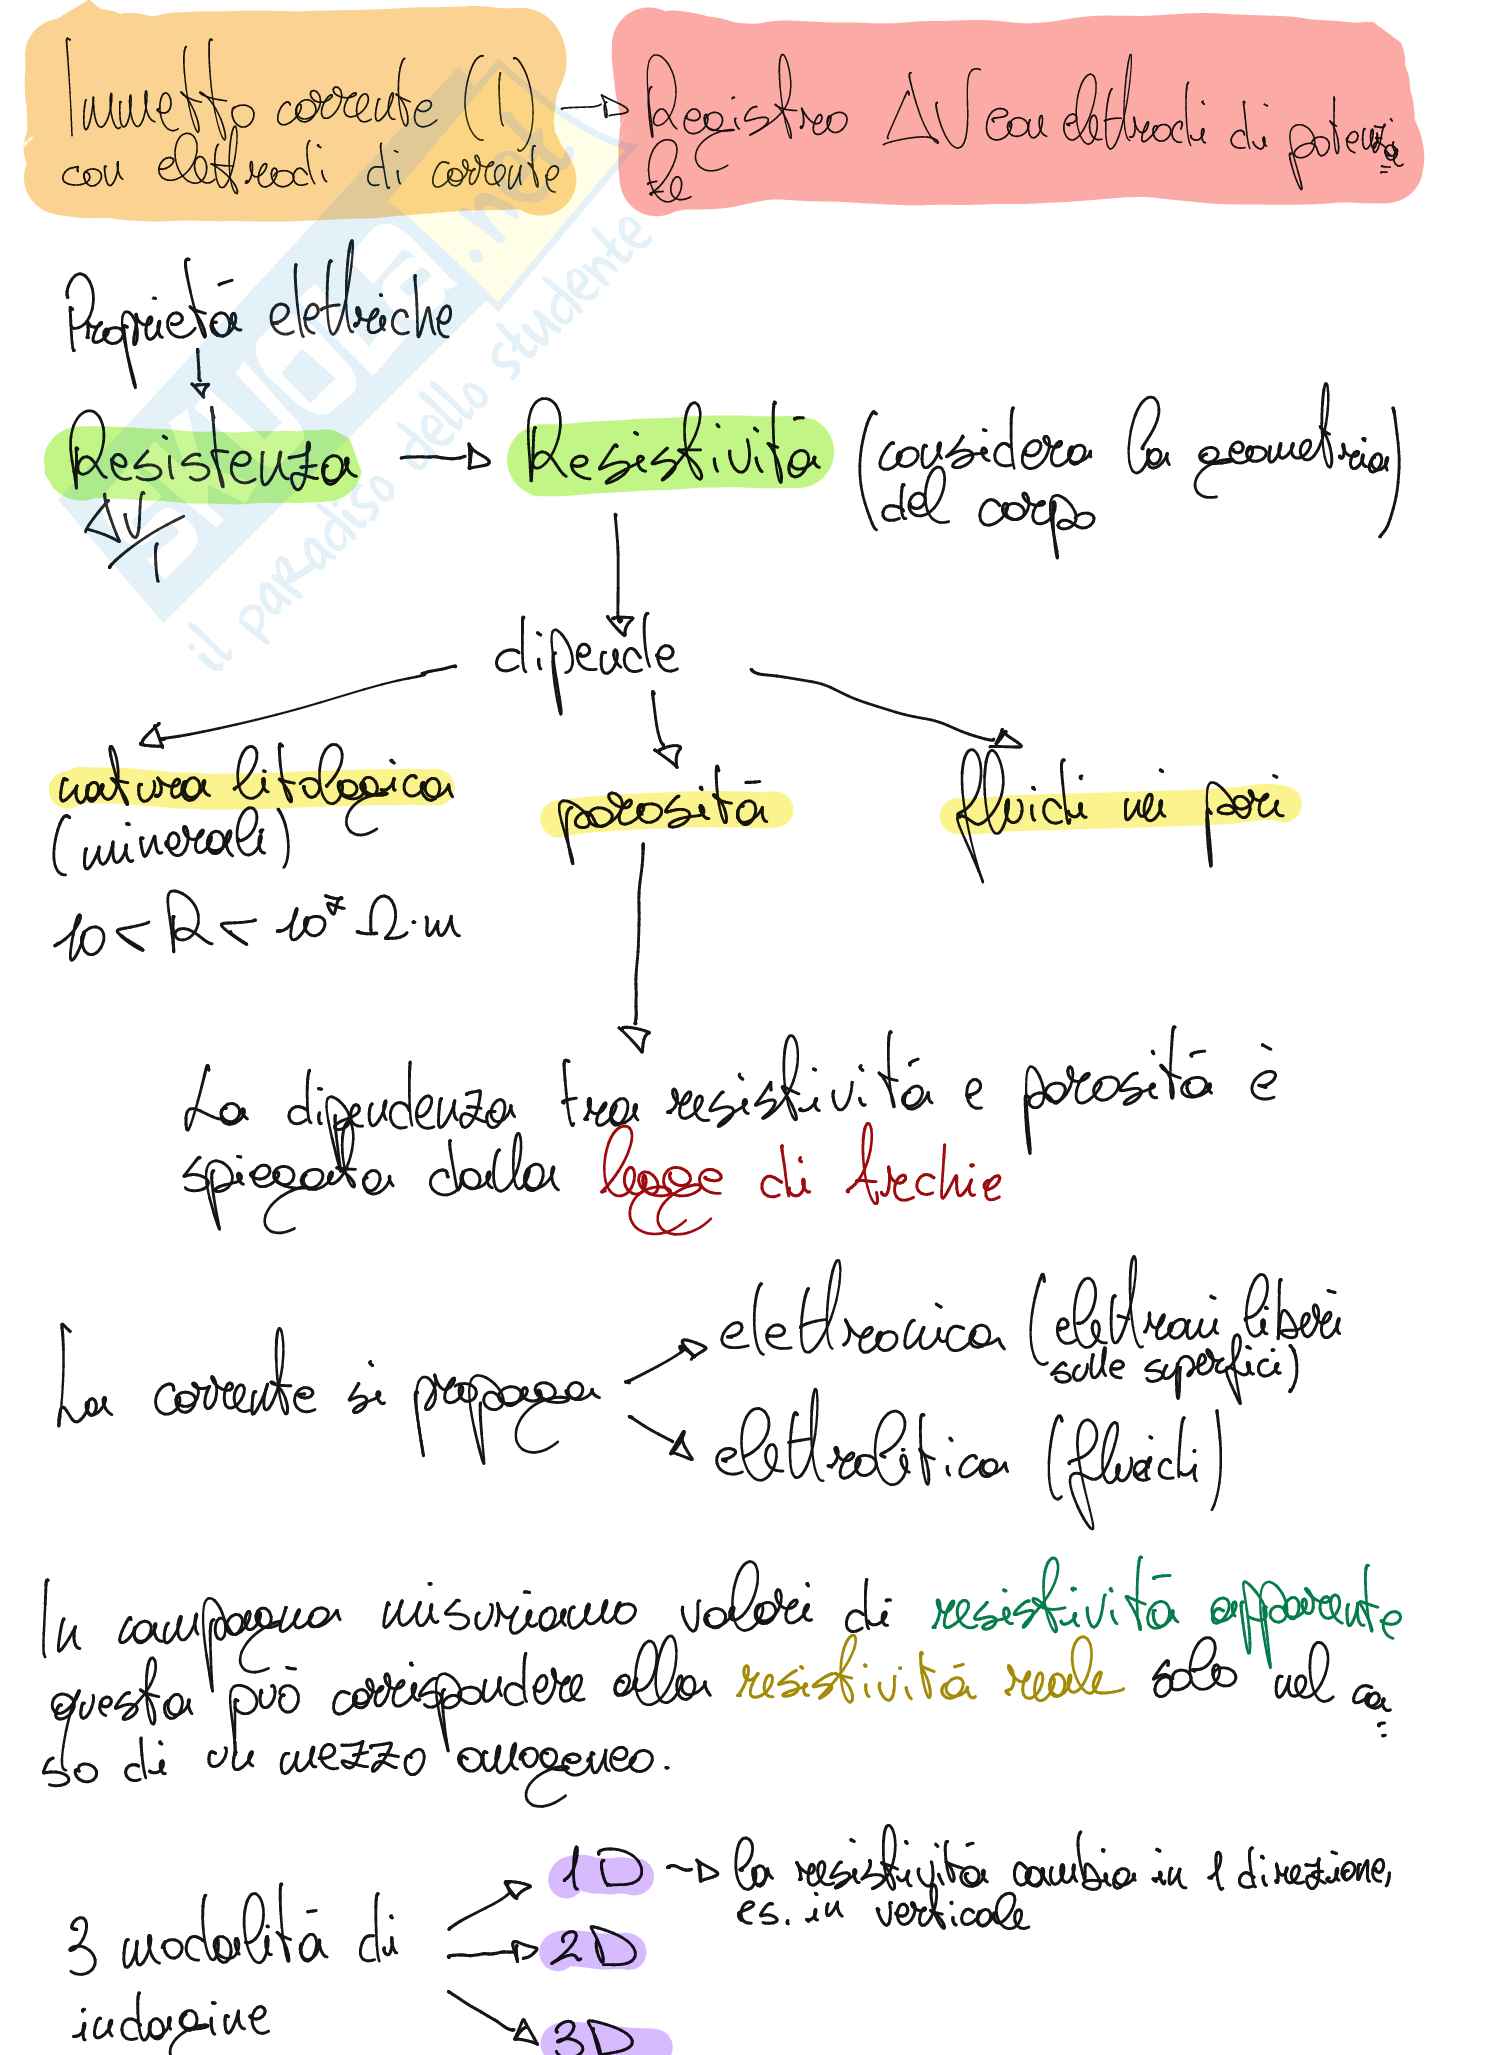 Immetto corrente (I) → Registro ΔV con elettrodi di potenzia
con elettrodi di corrente le
Proprietà elettriche
Resistenza → Resistività (considera la geometria
ΔV/I del corpo)
dipende
natura litologica porosità fluidi nei pori
(minerali)
10 < R < 10⁷ Ω·m
La dipendenza tra resistività e porosità è
spiegata dalla legge di Archie
elettronica (elettroni liberi
sulle superfici)
La corrente si propaga
elettrolitica (fluidi)
In campagna misuriamo valori di resistività apparente
questa può corrispondere alla resistività reale solo nel ca
so di un mezzo omogeneo.
1D → la resistività cambia in 1 direzione,
es. in verticale
3 modalità di 2D
indagine 3D
SKUOLA.net
il paradiso dello studente